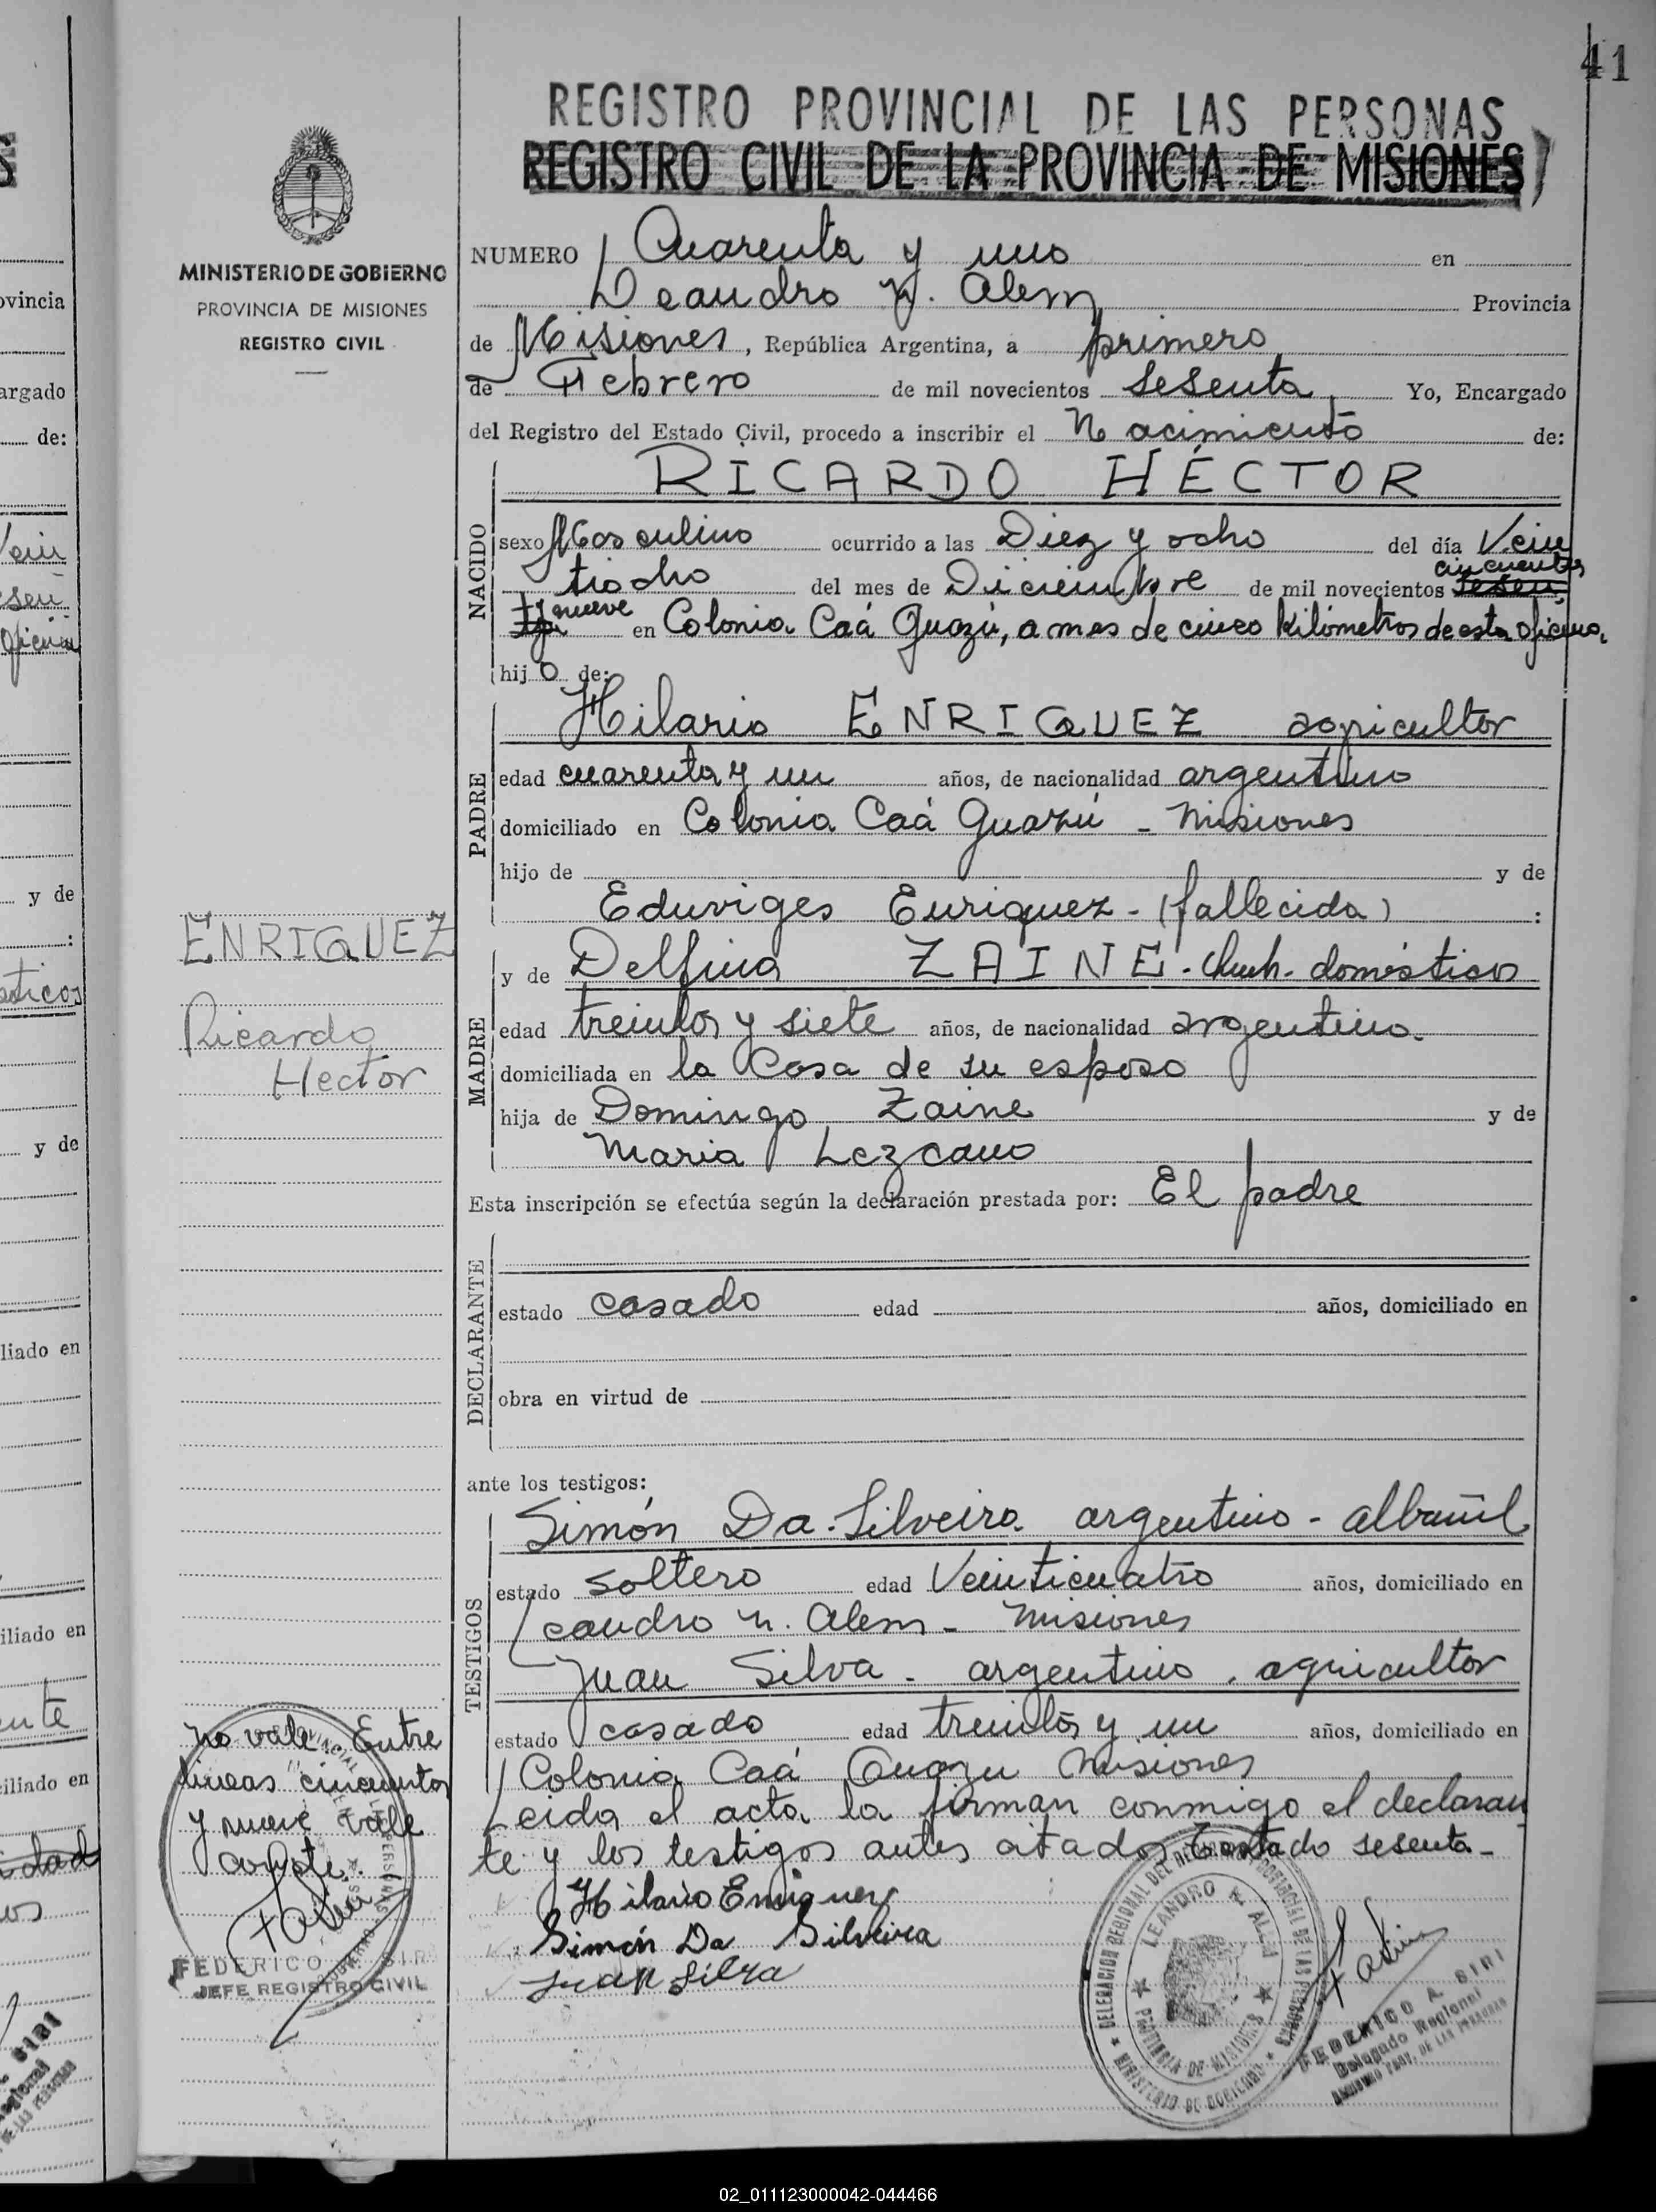 41
REGISTRO PROVINCIAL DE LAS PERSONAS
REGISTRO CIVIL DE LA PROVINCIA DE MISIONES
MINISTERIO DE GOBIERNO
PROVINCIA DE MISIONES
REGISTRO CIVIL
NUMERO Cuarenta y uno en
Leandro N. Alem Provincia
de Misiones, República Argentina, a primero
de Febrero de mil novecientos sesenta Yo, Encargado
del Registro del Estado Civil, procedo a inscribir el Nacimiento de:
NACIDO
RICARDO HÉCTOR
sexo Masculino ocurrido a las Diez y ocho del día Vein
tiocho del mes de Diciembre de mil novecientos cincuenta sesen
ta y nueve en Colonia Caá Guazú, a mas de cinco kilómetros de esta oficina,
hijo de:
PADRE
Hilario ENRIQUEZ agricultor
edad cuarenta y un años, de nacionalidad argentino
domiciliado en Colonia Caá Guazú - Misiones
hijo de y de
Eduviges Enriquez - (fallecida) :
MADRE
y de Delfina ZAINE - doméstico
edad treinta y siete años, de nacionalidad argentina.
domiciliada en la Casa de su esposo
hija de Domingo Zaine y de
Maria Lezcano
Esta inscripción se efectúa según la declaración prestada por: El padre
DECLARANTE
estado casado edad años, domiciliado en
obra en virtud de
ante los testigos:
TESTIGOS
Simón Da Silveira argentino - albañil
estado soltero edad Veinticuatro años, domiciliado en
Leandro N. Alem - Misiones
Juan Silva - argentino, agricultor
estado casado edad treinta y un años, domiciliado en
Colonia Caá Guazu Misiones
Leida el acta la firman conmigo el declaran
te y los testigos antes citados Testado sesenta -
Hilario Enriquez
Simón Da Silveira
Juan Silva
ENRIQUEZ
Ricardo
Hector
no vale. Entre
lineas cincuenta
y nueve vale
FEDERICO SIRI
JEFE REGISTRO CIVIL
DELEGACION REGIONAL DEL REGISTRO PROVINCIAL DE LAS PERSONAS
LEANDRO N. ALEM
PROVINCIA DE MISIONES
MINISTERIO DE GOBIERNO
FEDERICO A. SIRI
Delegado Regional
REGISTRO PROV. DE LAS PERSONAS
ovincia
argado
de:
y de
y de
liado en
iliado en
iliado en
02_011123000042-044466